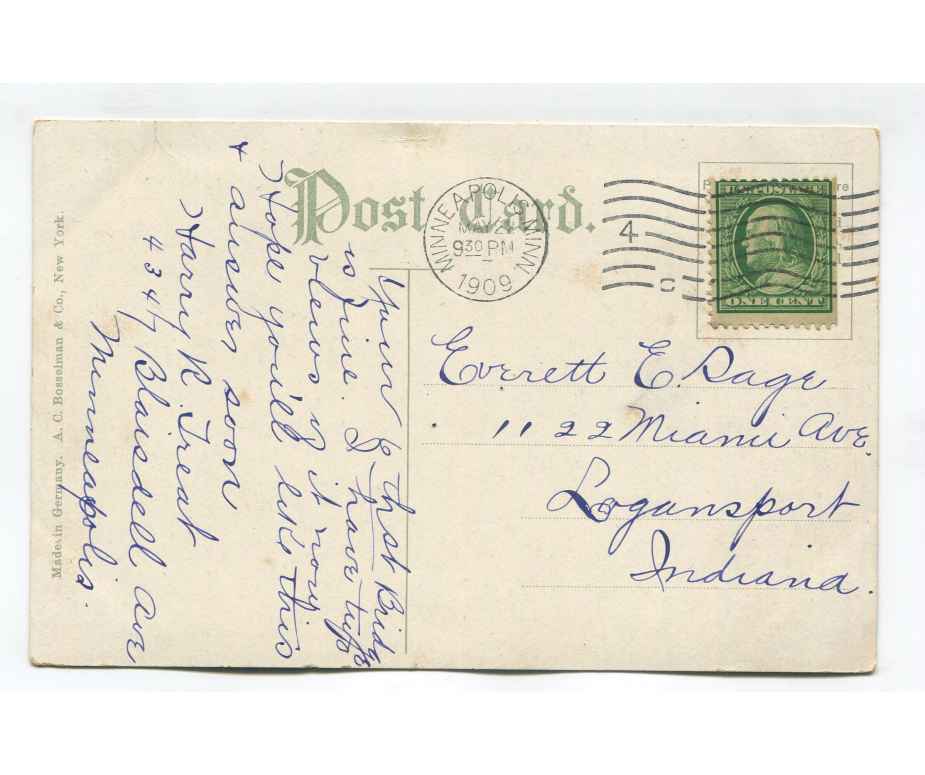 Post Card.
MINNEAPOLIS, MINN.
MAY 2
9 30 PM
1909
4
C
U.S. POSTAGE
ONE CENT
Everett E. Sage
1122 Miami Ave.
Logansport
Indiana.
Your
is fine. I have
views of it more
Hope you'll like this
& answer soon
Harry R. Treat
4344 Blaisdell Ave
Minneapolis.
Made in Germany. A. C. Bosselman & Co., New York.